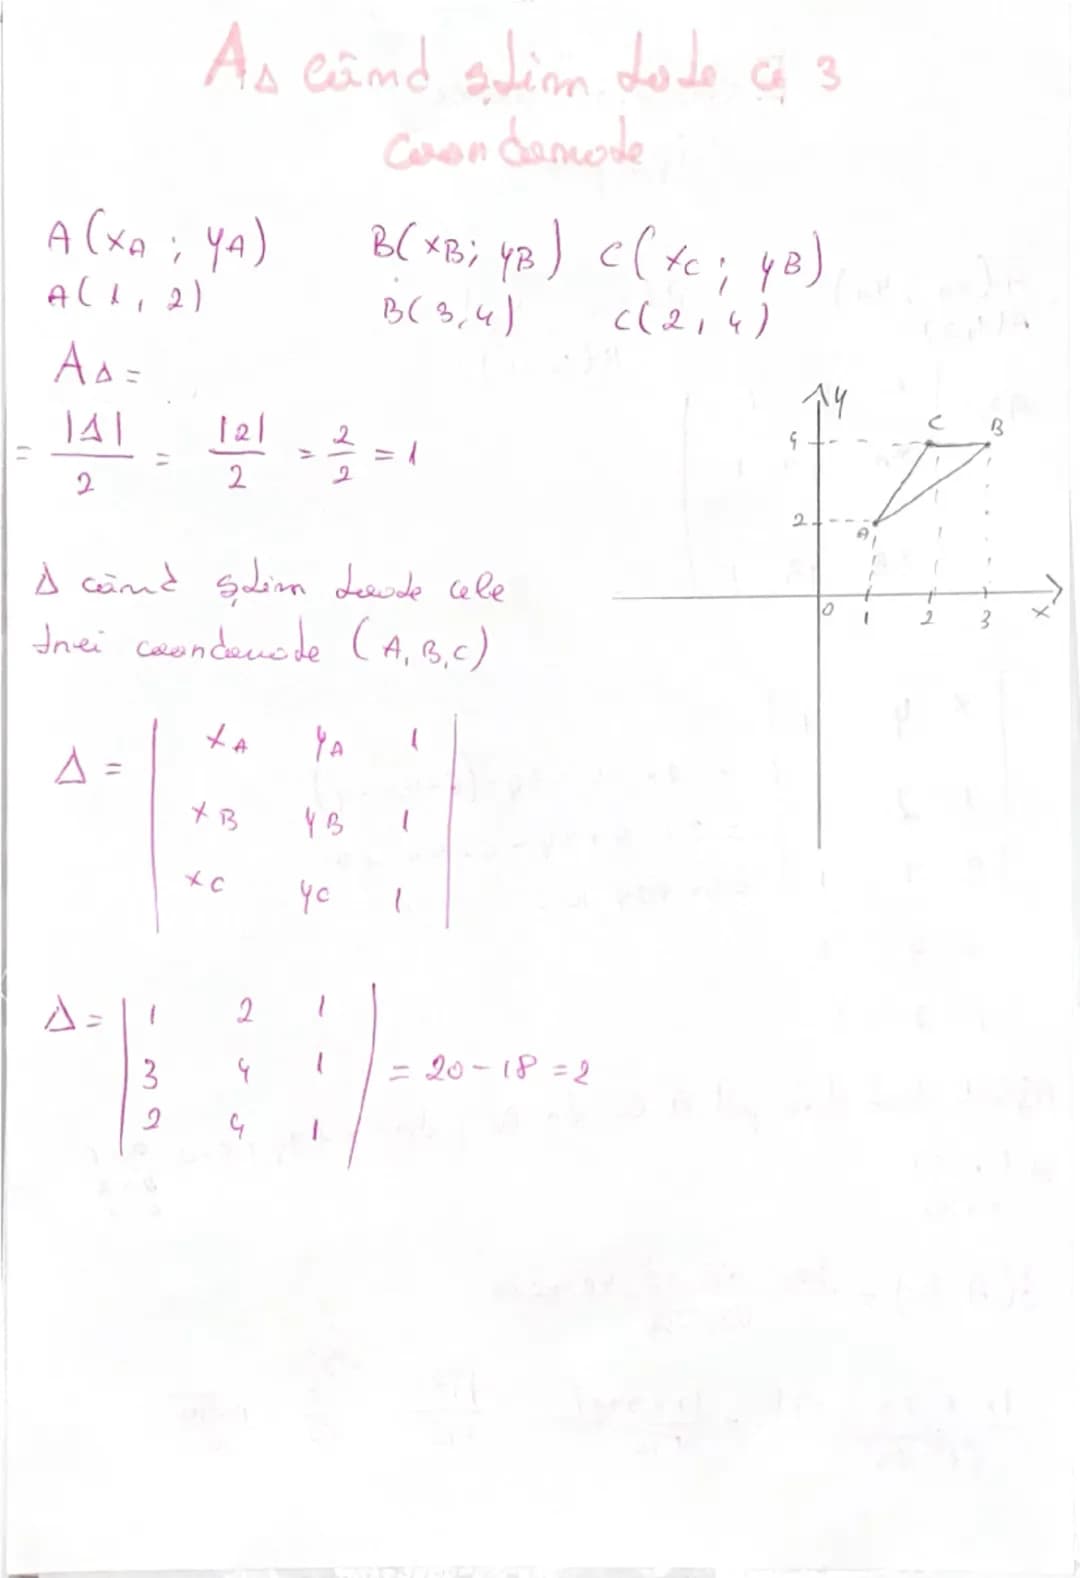 A∆ când știm toate cele 3
coordonate
A(xA ; yA) B(xB; yB) C(xC ; yB)
A(1, 2) B(3,4) C(2, 4)
A∆ =
= |∆|/2 = |2|/2 = 2/2 = 1
∆ când știm toate cele
trei coordonate (A, B, C)
∆ = | xA yA 1
xB yB 1
xC yC 1 |
∆ = | 1 2 1
3 4 1 = 20 - 18 = 2
2 4 1 |
y
4 C B
2 A
0 1 2 3 x